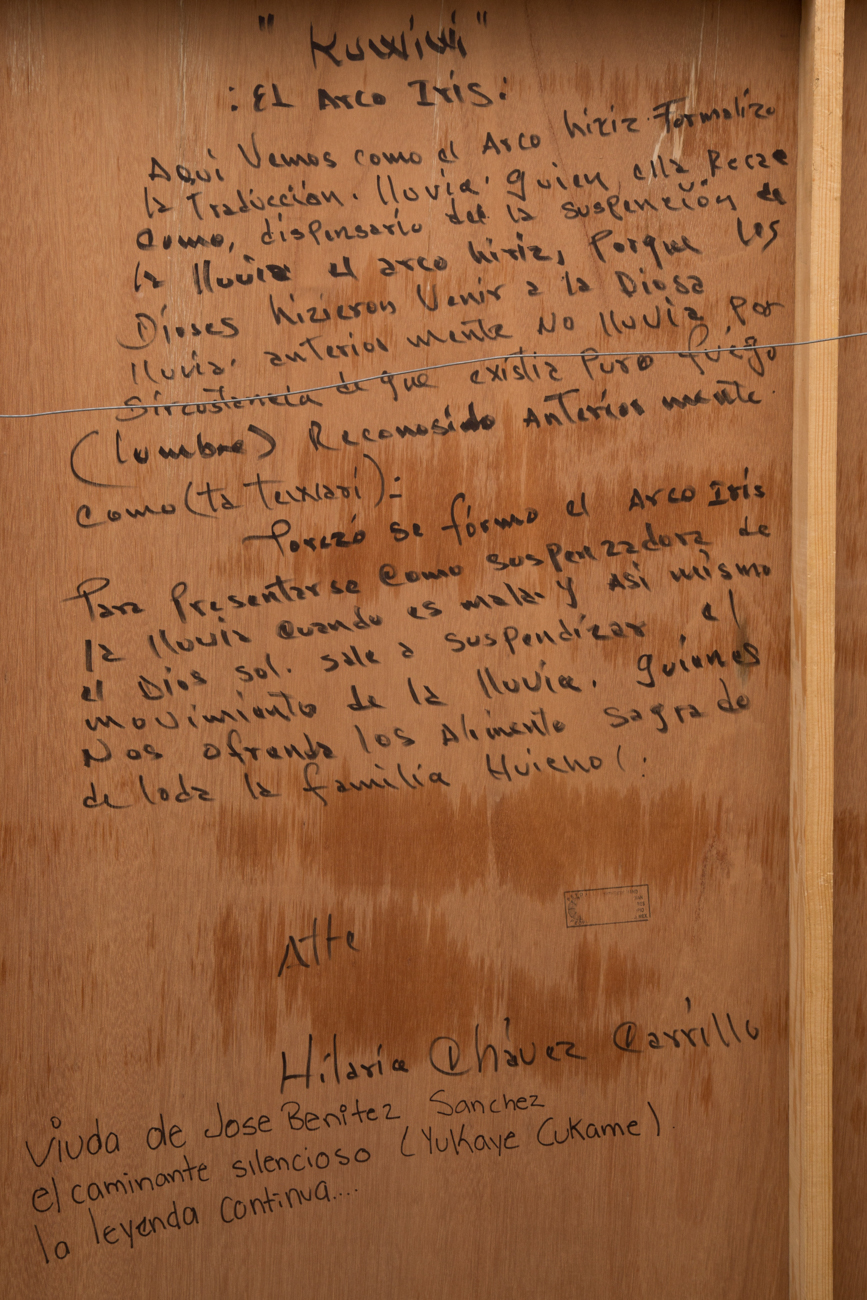 "Kuwiwi"
: EL Arco Iris :
Aquí Vemos como el Arco hiriz Formalizo
la Traducción. lluvia. quien ella Recae
como, dispensario del la suspención de
la lluvia el arco hiriz, Porque los
Dioses hizieron Venir a la Diosa
lluvia. anterior mente No lluvia Por
Sircustancia de que existia Puro fuego
(lumbre) Reconosido Anterior mente.
como (ta tewari):
Porezo se formo el Arco Iris
Para Presentarse como suspenzadora de
la lluvia cuando es mala. y Asi mismo
el Dios sol. sale a suspendizar el
movimiento de la lluvia. quienes
Nos ofrenda los Alimento sagrado
de toda la familia Huichol.
Atte
Hilaria Chávez Carrillo
Viuda de Jose Benitez Sanchez
el caminante silencioso (Yukaye Cukame).
la leyenda continua....